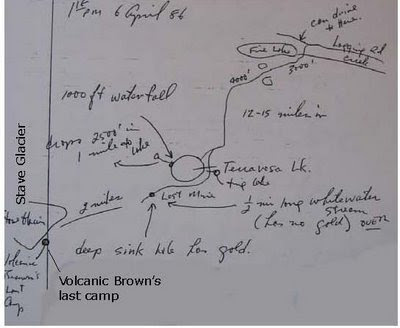 1 pm 6 April 86
can drive
to here.
Fire Lake
Logging Rd
creek
4000'
3000'
1000 ft waterfall
12-15 miles in
drops 2500' in
1 mile to lake
a
Terravosa Lk.
Lost Mine
3 miles
1/2 mi long whitewater
stream
(has no gold) OVER
deep sink hole has gold.
Stave Glacier
Stave Glacier
Volcanic
Brown's
Last
Camp
Volcanic Brown's
last camp